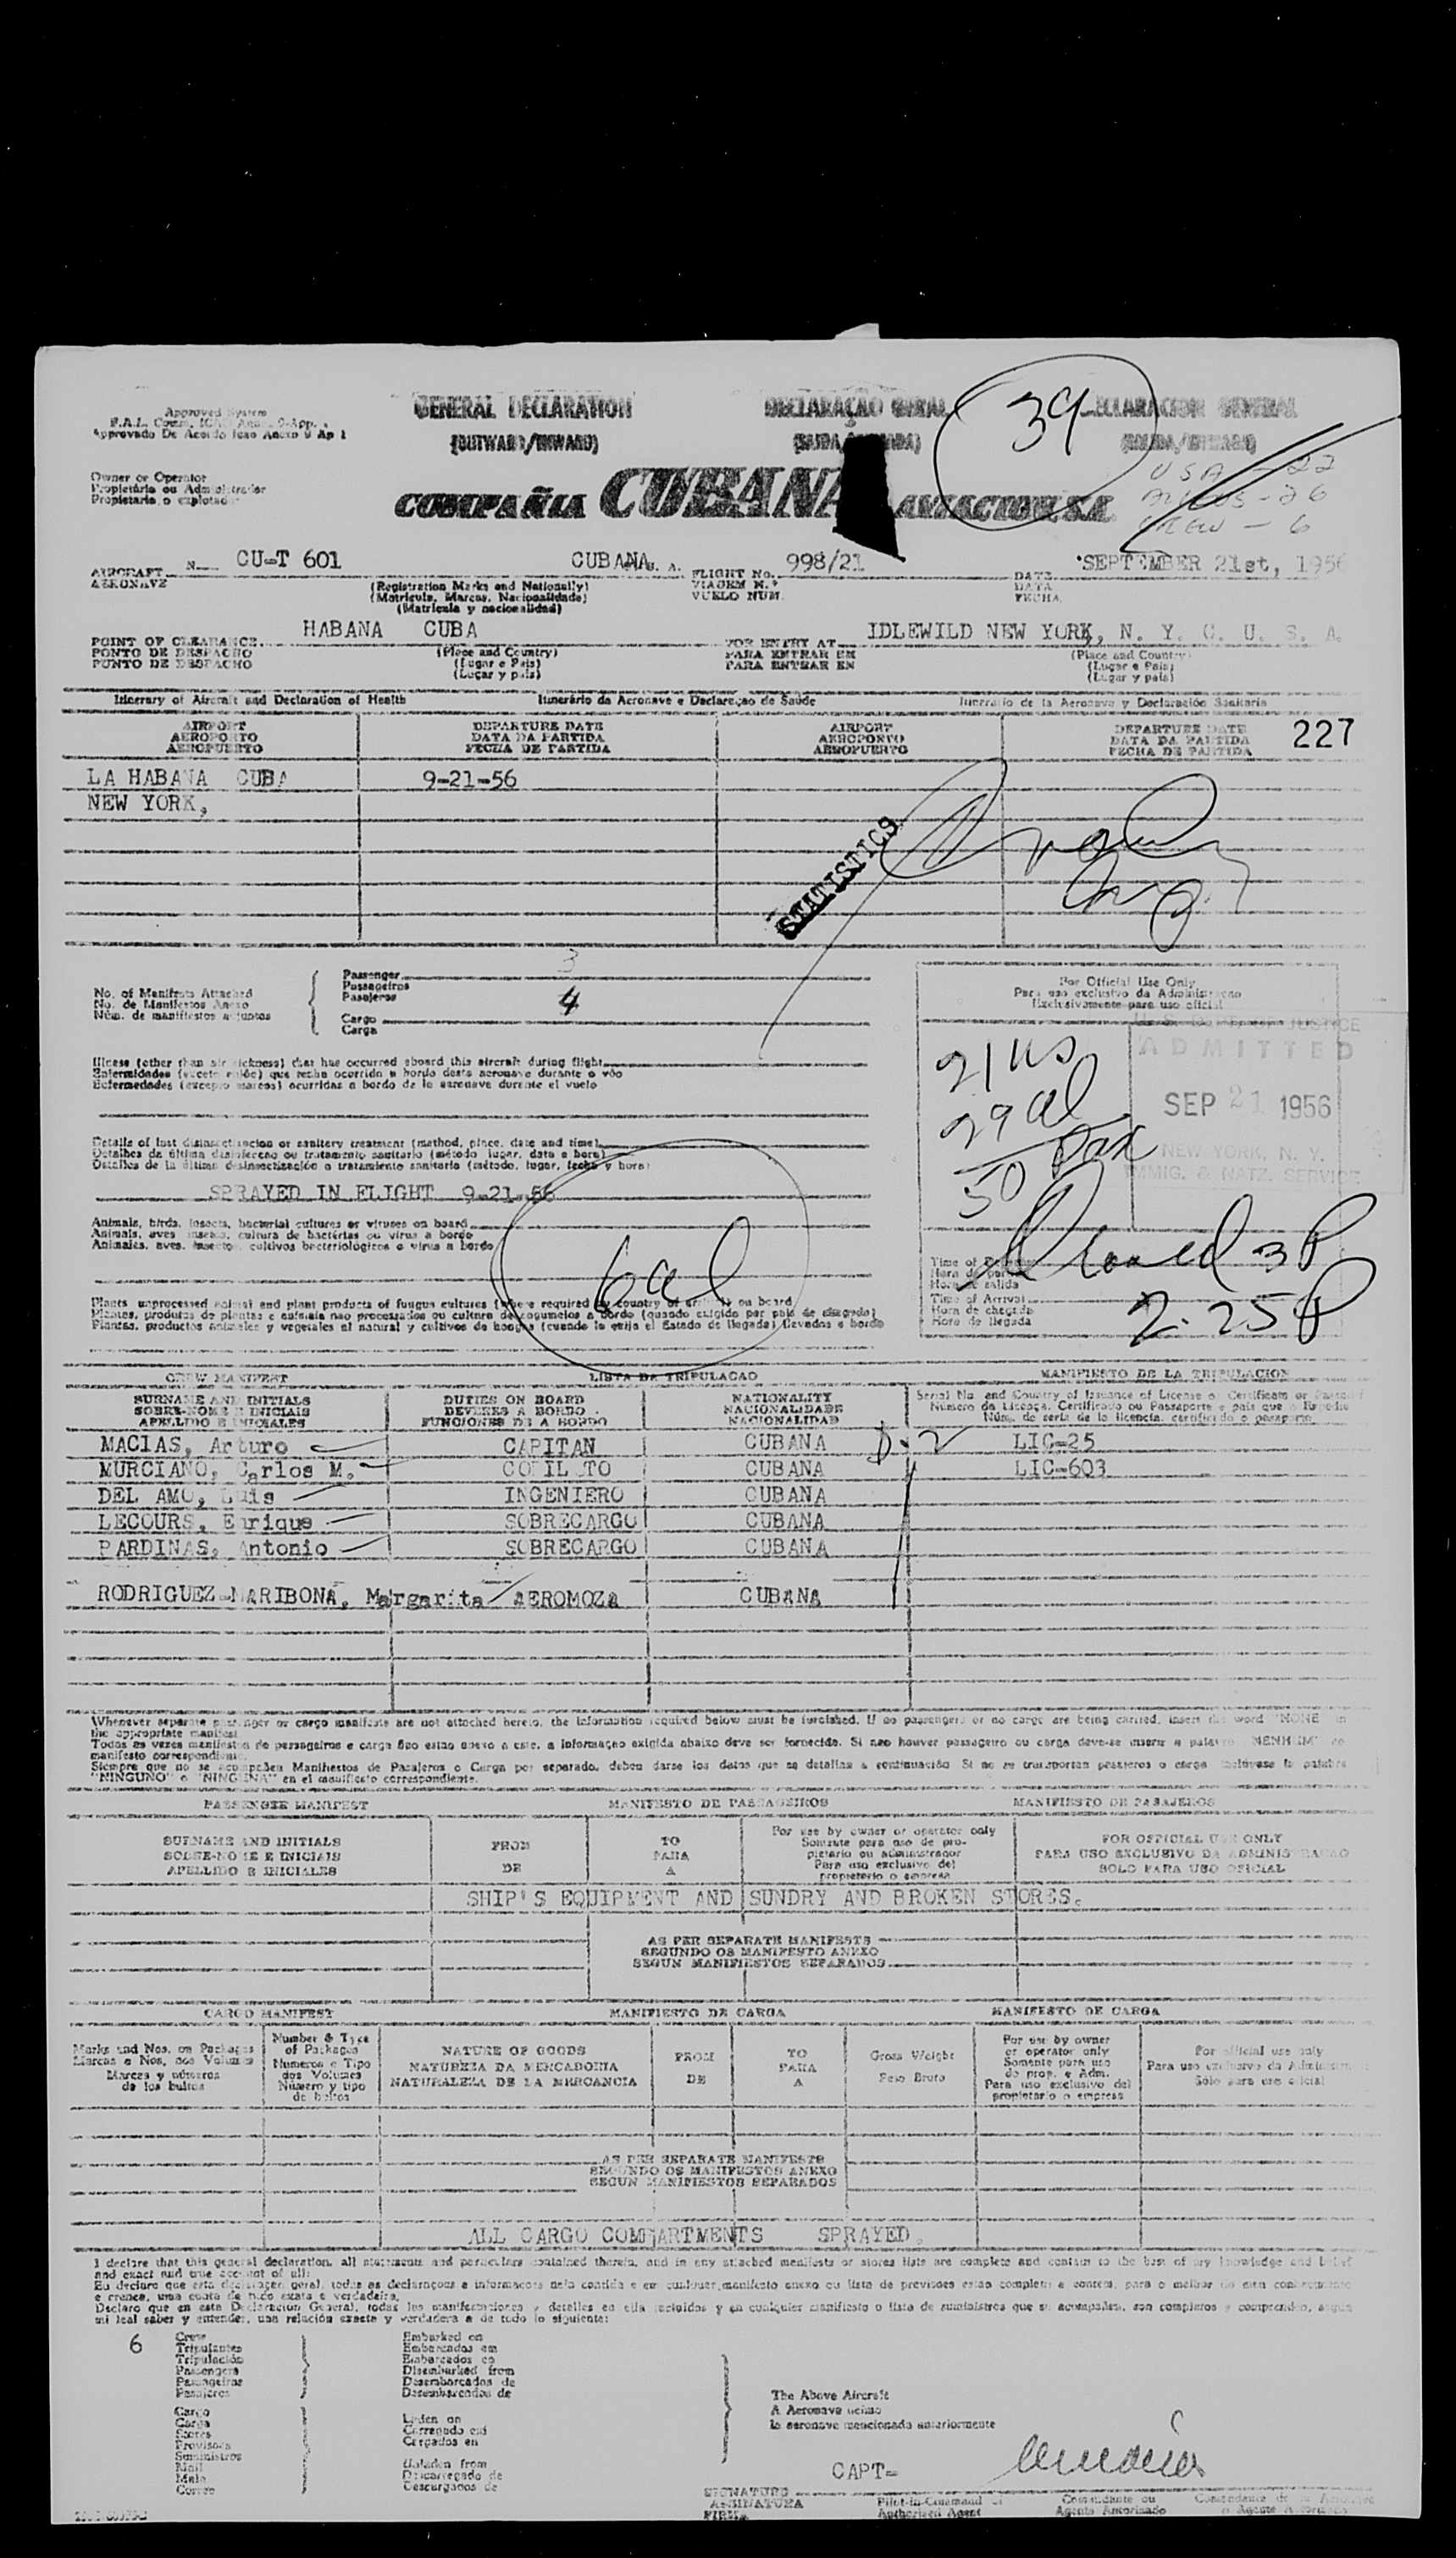 Approved System
F.A.L. Comm. ICAO Anex. 9-App. 1
Approvado De Acordo Icao Anexo 9 Ap 1
GENERAL DECLARATION
(OUTWARD/INWARD)
DECLARAÇAO GERAL
DECLARACION GENERAL
(SALIDA/ENTRADA)
39
Owner or Operator
Propietário ou Administrador
Propietario o explotador
COMPAÑIA CUBANA AVIACION S.A.
USA - 22
ALIENS - 26
CREW - 6
AIRCRAFT N CU-T 601 CUBANA S. A. FLIGHT No. 998/21 DATE SEPTEMBER 21st, 1956
AERONAVE (Registration Marks and Nationally) VIAGEM N.º DATA
(Matricula, Marcas, Nacionalidade) VUELO NUM. FECHA
(Matrícula y nacionalidad)
POINT OF CLEARANCE HABANA CUBA FOR ENTRY AT IDLEWILD NEW YORK, N. Y. C. U. S. A.
PONTO DE DESPACHO (Place and Country) PARA ENTRAR EM (Place and Country)
PUNTO DE DESPACHO (Lugar e Pais) PARA ENTRAR EN (Lugar e Pais)
(Lugar y país) (Lugar y país)
Itinerary of Aircraft and Declaration of Health Itinerário da Aeronave e Declaraçao de Saúde Itinerario de la Aeronave y Declaración Sanitaria
AIRPORT DEPARTURE DATE AIRPORT DEPARTURE DATE
AEROPORTO DATA DA PARTIDA AEROPORTO DATA DA PARTIDA
AEROPUERTO FECHA DE PARTIDA AEROPUERTO FECHA DE PARTIDA
227
LA HABANA CUBA 9-21-56
NEW YORK,
STATISTICS
No. of Manifests Attached Passenger 3
No. de Manifestos Anexo Passageiros
Núm. de manifiestos adjuntos Pasajeros 4
Cargo
Carga
For Official Use Only
Para uso exclusivo da Administraçao
Exclusivamente para uso oficial
U. S. DEPT. OF JUSTICE
ADMITTED
SEP 21 1956
NEW YORK, N. Y.
IMMIG. & NATZ. SERVICE
21 US
29 al
50 Pax
Illness (other than air sickness) that has occurred aboard this aircraft during flight
Enfermidades (exceto enjôo) que tenha ocorrido a bordo desta aeronave durante o vôo
Enfermedades (excepto mareos) ocurridas a bordo de la aeronave durante el vuelo
Details of last disinsectization or sanitary treatment (method, place, date and time)
Detalhes da última desinfeccao ou tratamento sanitario (método lugar, data e hora)
Detalles de la última desinsectización o tratamiento sanitario (método, lugar, fecha y hora)
SPRAYED IN FLIGHT 9-21-56
Animals, birds, insects, bacterial cultures or viruses on board
Animais, aves insetos, cultura de bactérias ou virus a bordo
Animales, aves, insectos, cultivos bacteriológicos o virus a bordo
6 al
Plants unprocessed animal and plant products of fungus cultures (where required by country of arrival) on board
Plantas, produtos de plantas e animais nao processados ou cultura de cogumelos a bordo (quando exigido por país de chegada)
Plantas, productos animales y vegetales al natural y cultivos de hongos (cuando lo exija el Estado de llegada) llevados a bordo
Hora de salida
3 P
Time of Arrival
Hora de chegada
Hora de llegada
2.25 P
CREW MANIFEST LISTA DA TRIPULACAO MANIFIESTO DE LA TRIPULACION
SURNAME AND INITIALS DUTIES ON BOARD NATIONALITY Serial No. and Country of Issuance of License or Certificate or Passport
SOBRE-NOME E INICIAIS DEVERES A BORDO NACIONALIDADE Número da Licença, Certificado ou Passaporte e país que o Expediu
APELLIDO E INICIALES FUNCIONES DE A BORDO NACIONALIDAD Núm. de serie de la licencia, certificado o pasaporte
MACIAS, Arturo CAPITAN CUBANA D-2 LIC-25
MURCIANO, Carlos M. COPILOTO CUBANA LIC-603
DEL AMO, Luis INGENIERO CUBANA
LECOURS, Enrique SOBRECARGO CUBANA
PARDINAS, Antonio SOBRECARGO CUBANA
RODRIGUEZ-MARIBONA, Margarita AEROMOZA CUBANA
Whenever separate passenger or cargo manifests are not attached hereto, the information required below must be furnished. If no passengers or no cargo are being carried, insert the word "NONE" in
the appropriate manifest
Todas as vezes manifestos de passageiros e carga ñao estao anexo a este, a informaçao exigida abaixo deve ser fornecida. Si nao houver passageiro ou carga deve-se inserir a palavra "NENHUM" no
manifesto correspondiente.
Siempre que no se acompañen Manifiestos de Pasajeros o Carga por separado, deben darse los datos que se detallan a continuación Si no se transportan pasajeros o carga inclúyase la palabra
"NINGUNO" o "NINGUNA" en el manifiesto correspondiente.
PASSENGER MANIFEST MANIFESTO DE PASSAGEIROS MANIFIESTO DE PASAJEROS
SURNAME AND INITIALS FROM TO For use by owner or operator only FOR OFFICIAL USE ONLY
SOBRE-NOME E INICIAIS PARA Somente para uso de pro- PARA USO EXCLUSIVO DA ADMINISTRACAO
APELLIDO E INICIALES DE A pietario ou administrador SOLO PARA USO OFICIAL
Para uso exclusivo del
propietario o empresa
SHIP'S EQUIPMENT AND SUNDRY AND BROKEN STORES.
AS PER SEPARATE MANIFESTS
SEGUNDO OS MANIFESTO ANEXO
SEGUN MANIFIESTOS SEPARADOS
CARGO MANIFEST MANIFIESTO DE CARGA MANIFIESTO DE CARGA
Marks and Nos. on Packages Number & Type NATURE OF GOODS FROM TO Gross Weight For use by owner For official use only
Marcas e Nos. dos Volumes of Packages NATUREZA DA MERCADORIA PARA Peso Bruto or operator only Para uso exclusivo da Administr
Marcas y números Numeros e Tipo NATURALEZA DE LA MERCANCIA DE A Somente para uso Sólo para uso oficial
de los bultos dos Volumes do prop. e Adm.
Número y tipo Para uso exclusivo del
de bultos propietario o empresa
AS PER SEPARATE MANIFESTS
SEGUNDO OS MANIFESTOS ANEXO
SEGUN MANIFIESTOS SEPARADOS
ALL CARGO COMPARTMENTS SPRAYED.
I declare that this general declaration, all statements and particulars contained therein, and in any attached manifests or stores lists are complete and contain to the best of my knowledge and belief
and exact and true account of all:
Eu declaro que esta declaraçao geral, todas as declaraçoes e informacoes nela contida e em cualquer manifesto anexo ou lista de previsoes estao completa e contem, para o melhor do meu conhecimento
e crenca, uma conta de tudo exata e verdadeira.
Declaro que en esta Declaracion General, todas las manifestaciones y detalles en ella incluidos y en cualquier manifiesto o lista de suministros que se acompañen, son completos y comprenden, según
mi leal saber y entender, una relación exacta y verdadera a de todo lo siguiente:
6 Crew Embarked on
Tripulantes Embarcados em
Tripulación Embarcados en
Passengers Disembarked from
Passageiros Desembarcados de
Pasajeros Desembarcados de
Cargo Laden on
Carga Carregado em
Stores Cargados en
Provisoes
Suministros Unladen from
Mail Descarregado de
Mala Descargados de
Correo
The Above Aircraft
A Aeronave acima
la aeronave mencionada anteriormente
CAPT-
SIGNATURE
ASSINATURA Pilot-in-Command or Comandante ou Comandante de la Aeronave
FIRMA Authorized Agent Agente Autorizado o Agente Autorizado